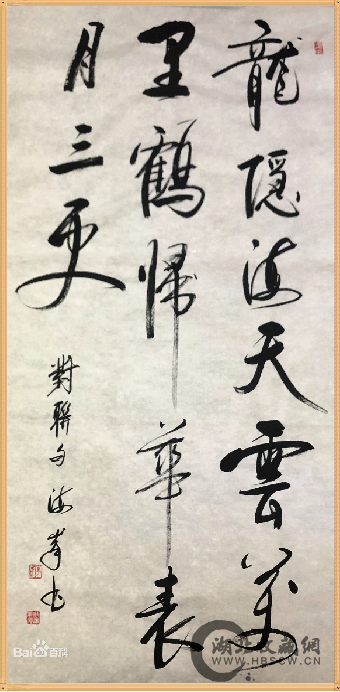 龍隱海天雲萬
里鶴歸華表
月三更
對聯句 海峯书
Bai百科
湖北收藏網
WWW.HBSCW.CN